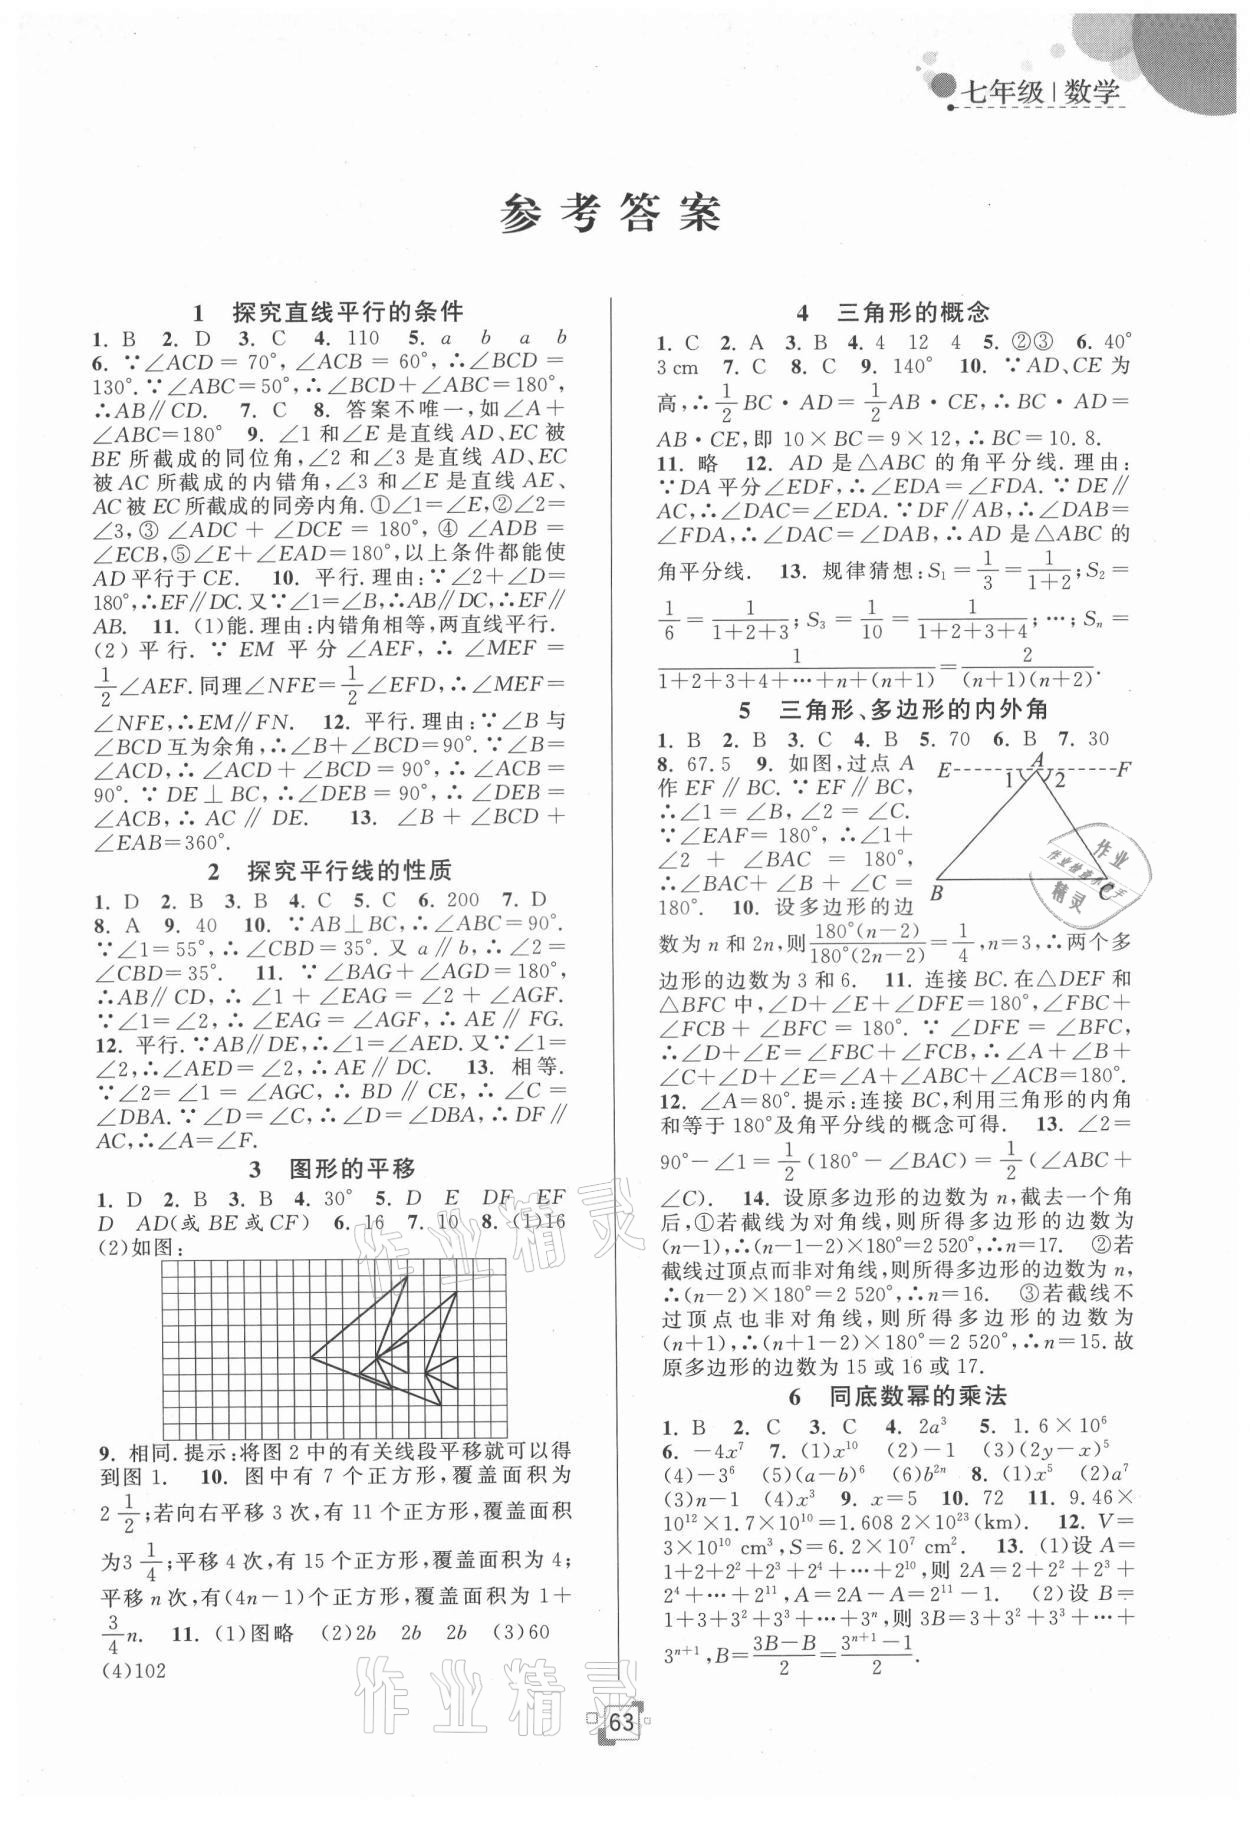 七年级|数学
参考答案
1 探究直线平行的条件
1. B 2. D 3. C 4. 110 5. a b a b
6. ∵∠ACD=70°,∠ACB=60°,∴∠BCD=
130°.∵∠ABC=50°,∴∠BCD+∠ABC=180°,
∴AB∥CD. 7. C 8. 答案不唯一,如∠A+
∠ABC=180° 9. ∠1和∠E是直线AD、EC被
BE所截成的同位角,∠2和∠3是直线AD、EC
被AC所截成的内错角,∠3和∠E是直线AE、
AC被EC所截成的同旁内角.①∠1=∠E,②∠2=
∠3,③∠ADC+∠DCE=180°,④∠ADB=
∠ECB,⑤∠E+∠EAD=180°,以上条件都能使
AD平行于CE. 10. 平行.理由:∵∠2+∠D=
180°,∴EF∥DC.又∵∠1=∠B,∴AB∥DC,∴EF∥
AB. 11. (1)能.理由:内错角相等,两直线平行.
(2)平行.∵EM平分∠AEF,∴∠MEF=
1/2∠AEF.同理∠NFE=1/2∠EFD,∴∠MEF=
∠NFE,∴EM∥FN. 12. 平行.理由:∵∠B与
∠BCD互为余角,∴∠B+∠BCD=90°.∵∠B=
∠ACD,∴∠ACD+∠BCD=90°,∴∠ACB=
90°.∵DE⊥BC,∴∠DEB=90°,∴∠DEB=
∠ACB,∴AC∥DE. 13. ∠B+∠BCD+
∠EAB=360°.
2 探究平行线的性质
1. D 2. B 3. B 4. C 5. C 6. 200 7. D
8. A 9. 40 10. ∵AB⊥BC,∴∠ABC=90°.
∵∠1=55°,∴∠CBD=35°.又a∥b,∴∠2=
∠CBD=35°. 11. ∵∠BAG+∠AGD=180°,
∴AB∥CD,∴∠1+∠EAG=∠2+∠AGF.
∵∠1=∠2,∴∠EAG=∠AGF,∴AE∥FG.
12. 平行.∵AB∥DE,∴∠1=∠AED.又∵∠1=
∠2,∴∠AED=∠2,∴AE∥DC. 13. 相等.
∵∠2=∠1=∠AGC,∴BD∥CE,∴∠C=
∠DBA.∵∠D=∠C,∴∠D=∠DBA,∴DF∥
AC,∴∠A=∠F.
3 图形的平移
1. D 2. B 3. B 4. 30° 5. D E DF EF
D AD(或BE或CF) 6. 16 7. 10 8. (1)16
(2)如图:
9. 相同.提示:将图2中的有关线段平移就可以得
到图1. 10. 图中有7个正方形,覆盖面积为
2 1/2;若向右平移3次,有11个正方形,覆盖面积
为3 1/4;平移4次,有15个正方形,覆盖面积为4;
平移n次,有(4n-1)个正方形,覆盖面积为1+
3/4 n. 11. (1)图略 (2)2b 2b 2b (3)60
(4)102
4 三角形的概念
1. C 2. A 3. B 4. 4 12 4 5. ②③ 6. 40°
3 cm 7. C 8. C 9. 140° 10. ∵AD、CE为
高,∴1/2 BC·AD=1/2 AB·CE,∴BC·AD=
AB·CE,即10×BC=9×12,∴BC=10.8.
11. 略 12. AD是△ABC的角平分线.理由:
∵DA平分∠EDF,∴∠EDA=∠FDA.∵DE∥
AC,∴∠DAC=∠EDA.∵DF∥AB,∴∠DAB=
∠FDA,∴∠DAC=∠DAB,∴AD是△ABC的
角平分线. 13. 规律猜想:S₁=1/3=1/(1+2);S₂=
1/6=1/(1+2+3);S₃=1/10=1/(1+2+3+4);…;Sₙ=
1/(1+2+3+4+…+n+(n+1))=2/((n+1)(n+2)).
5 三角形、多边形的内外角
1. B 2. B 3. C 4. B 5. 70 6. B 7. 30
8. 67.5 9. 如图,过点A
作EF∥BC.∵EF∥BC,
∴∠1=∠B,∠2=∠C.
∵∠EAF=180°,∴∠1+
∠2+∠BAC=180°,
∴∠BAC+∠B+∠C=
180°. 10. 设多边形的边
E A F
1 2
B C
数为n和2n,则180°(n-2)/180°(2n-2)=1/4,n=3,∴两个多
边形的边数为3和6. 11. 连接BC.在△DEF和
△BFC中,∠D+∠E+∠DFE=180°,∠FBC+
∠FCB+∠BFC=180°.∵∠DFE=∠BFC,
∴∠D+∠E=∠FBC+∠FCB,∴∠A+∠B+
∠C+∠D+∠E=∠A+∠ABC+∠ACB=180°.
12. ∠A=80°.提示:连接BC,利用三角形的内角
和等于180°及角平分线的概念可得. 13. ∠2=
90°-∠1=1/2(180°-∠BAC)=1/2(∠ABC+
∠C). 14. 设原多边形的边数为n,截去一个角
后,①若截线为对角线,则所得多边形的边数为
(n-1),∴(n-1-2)×180°=2 520°,∴n=17. ②若
截线过顶点而非对角线,则所得多边形的边数为n,
∴(n-2)×180°=2 520°,∴n=16. ③若截线不
过顶点也非对角线,则所得多边形的边数为
(n+1),∴(n+1-2)×180°=2 520°,∴n=15.故
原多边形的边数为15或16或17.
6 同底数幂的乘法
1. B 2. C 3. C 4. 2a³ 5. 1.6×10⁶
6. -4x⁷ 7. (1)x¹⁰ (2)-1 (3)(2y-x)⁵
(4)-3⁶ (5)(a-b)⁶ (6)b²ⁿ 8. (1)x⁵ (2)a⁷
(3)n-1 (4)x³ 9. x=5 10. 72 11. 9.46×
10¹²×1.7×10¹⁰=1.608 2×10²³(km). 12. V=
3×10¹⁰ cm³,S=6.2×10⁷ cm². 13. (1)设A=
1+2+2²+2³+2⁴+…+2¹⁰,则2A=2+2²+2³+
2⁴+…+2¹¹,A=2A-A=2¹¹-1. (2)设B=
1+3+3²+3³+…+3ⁿ,则3B=3+3²+3³+…+
3ⁿ⁺¹,B=(3B-B)/2=(3ⁿ⁺¹-1)/2.
63
作业精灵
作业精灵
作业
精灵